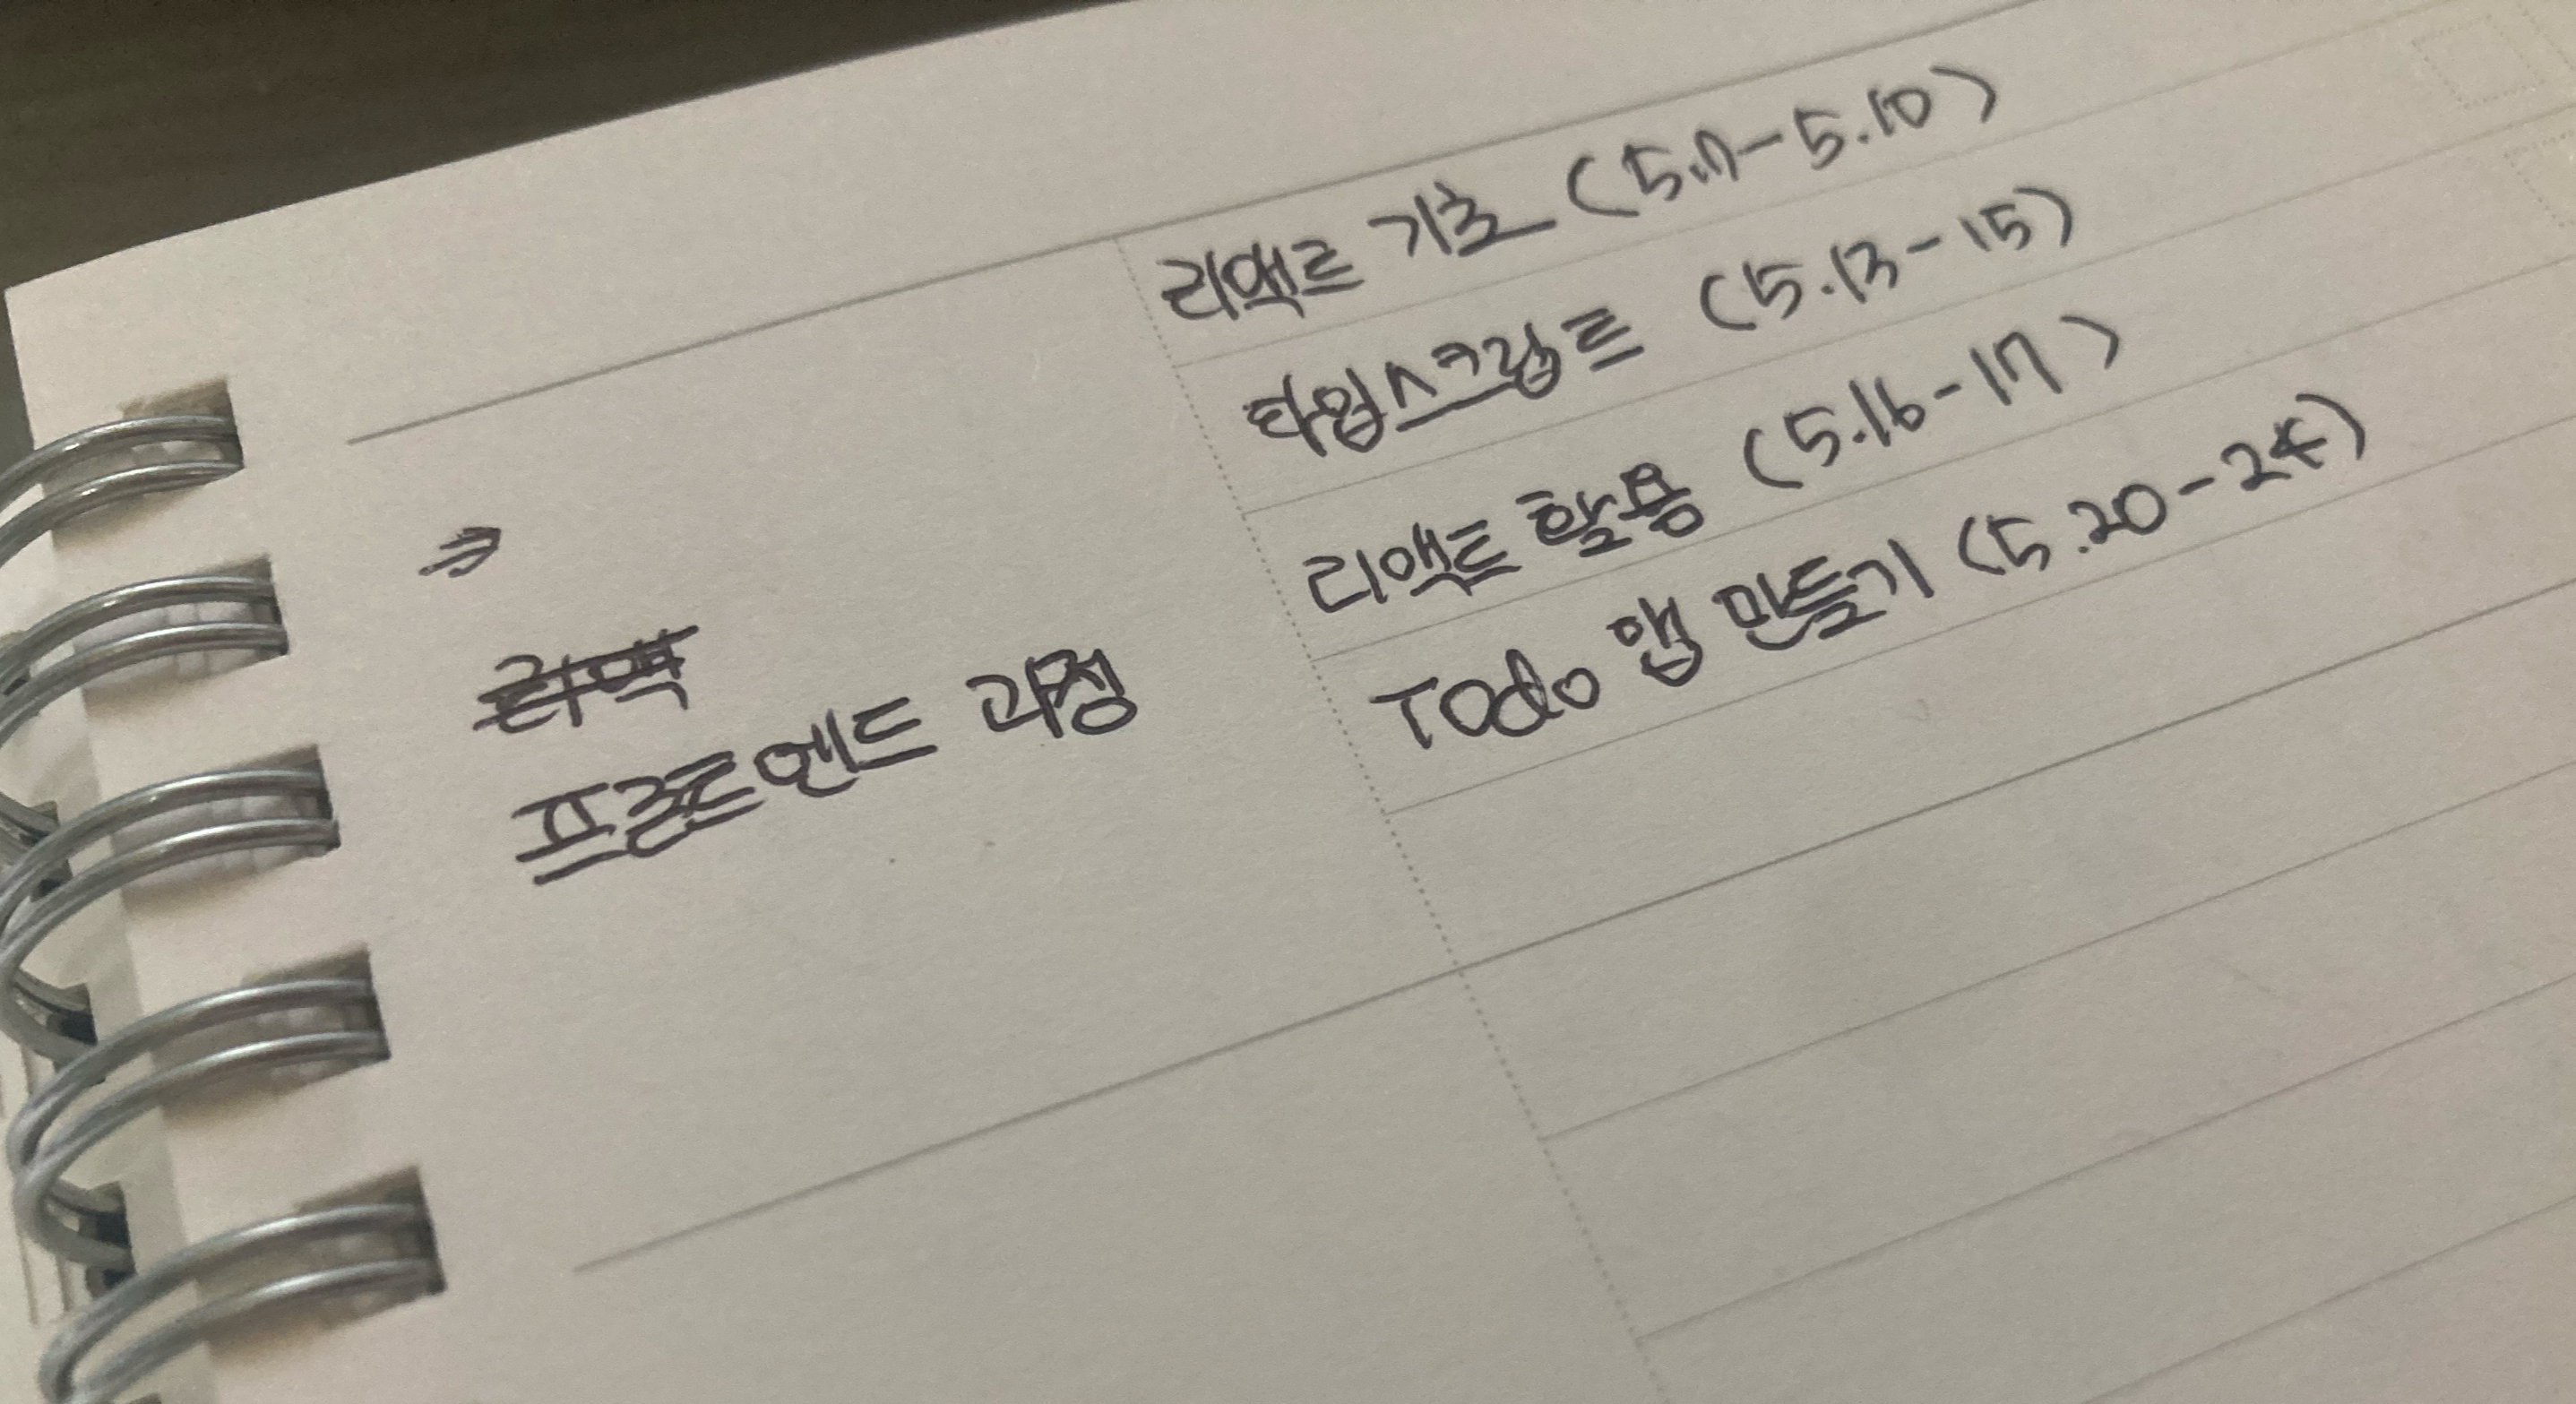 리액트 기초 (5.7-5.10)
타입스크립트 (5.13-15)
리액트 활용 (5.16-17)
Todo 앱 만들기 (5.20-24)
⇒
리액
프론트엔드 과정